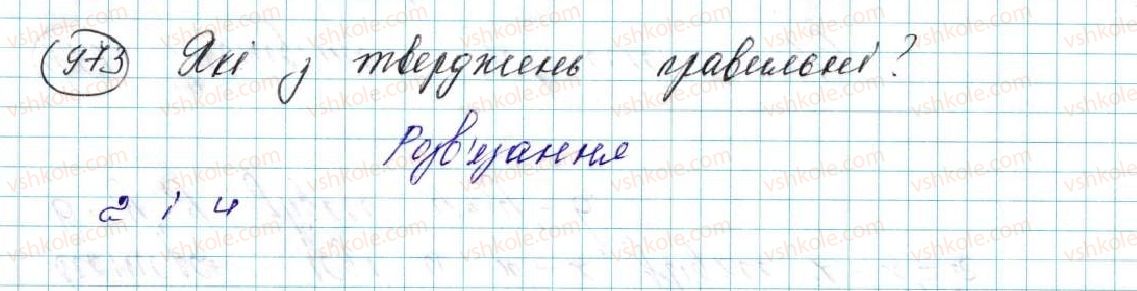 973 Які з тверджень правильні?
Розв'язання
2 і 4